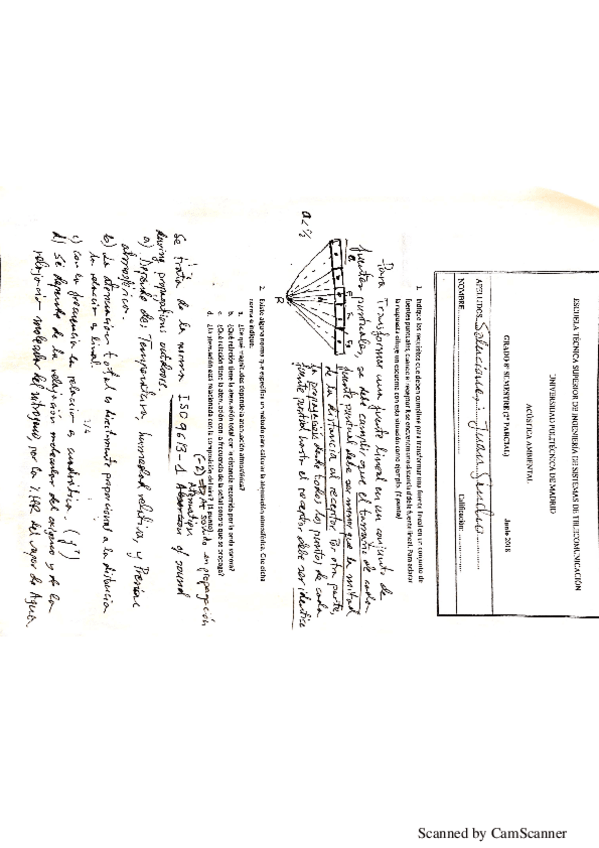 ESCUELA TÉCNICA SUPERIOR DE INGENIERÍA DE SISTEMAS DE TELECOMUNICACIÓN
UNIVERSIDAD POLITÉCNICA DE MADRID
ACÚSTICA AMBIENTAL
GRADO 6º SEMESTRE (2º PARCIAL) Junio 2018
APELLIDOS Soluciones: Juan Sancho
NOMBRE: Calificación:
1. Indique los requisitos que deben cumplirse para transformar una fuente lineal en un conjunto de
fuentes puntuales, cuando el receptor R se encuentra a una distancia d de la fuente lineal. Para aclarar
la respuesta dibuje un esquema con esta situación como ejemplo. (1 punto)
Para Transformar una fuente lineal en un conjunto de
fuentes puntuales, se debe cumplir que el tamaño de cada
fuente puntual debe ser menor que la mitad
de la distancia al receptor. Por otra parte,
la propagación desde todos los puntos de cada
fuente puntual hasta el receptor debe ser idéntica
R
2. Existe alguna norma que especifica un método para calcular la atenuación atmosférica. Cite dicha
norma e indique.
a. ¿De qué magnitudes depende la atenuación atmosférica?
b. ¿Qué relación tiene la atenuación total con la distancia recorrida por la onda sonora?
c. ¿Qué relación tiene la atenuación con la frecuencia de la señal sonora que se propaga?
d. ¿La atenuación está relacionada con la composición del aire? (1 punto)
Se trata de la norma ISO 9613-1 of sound
during propagation outdoors.
a) Depende de: Temperatura, humedad relativa, y Presión
atmosférica.
b) La atenuación total es directamente proporcional a la distancia
la relación es lineal.
c) Con la frecuencia la relación es cuadrática. (f²)
d) Si depende de la relajación molecular del oxígeno y de la
relajación molecular del nitrógeno, por la % HR del vapor de Agua.
Scanned by CamScanner